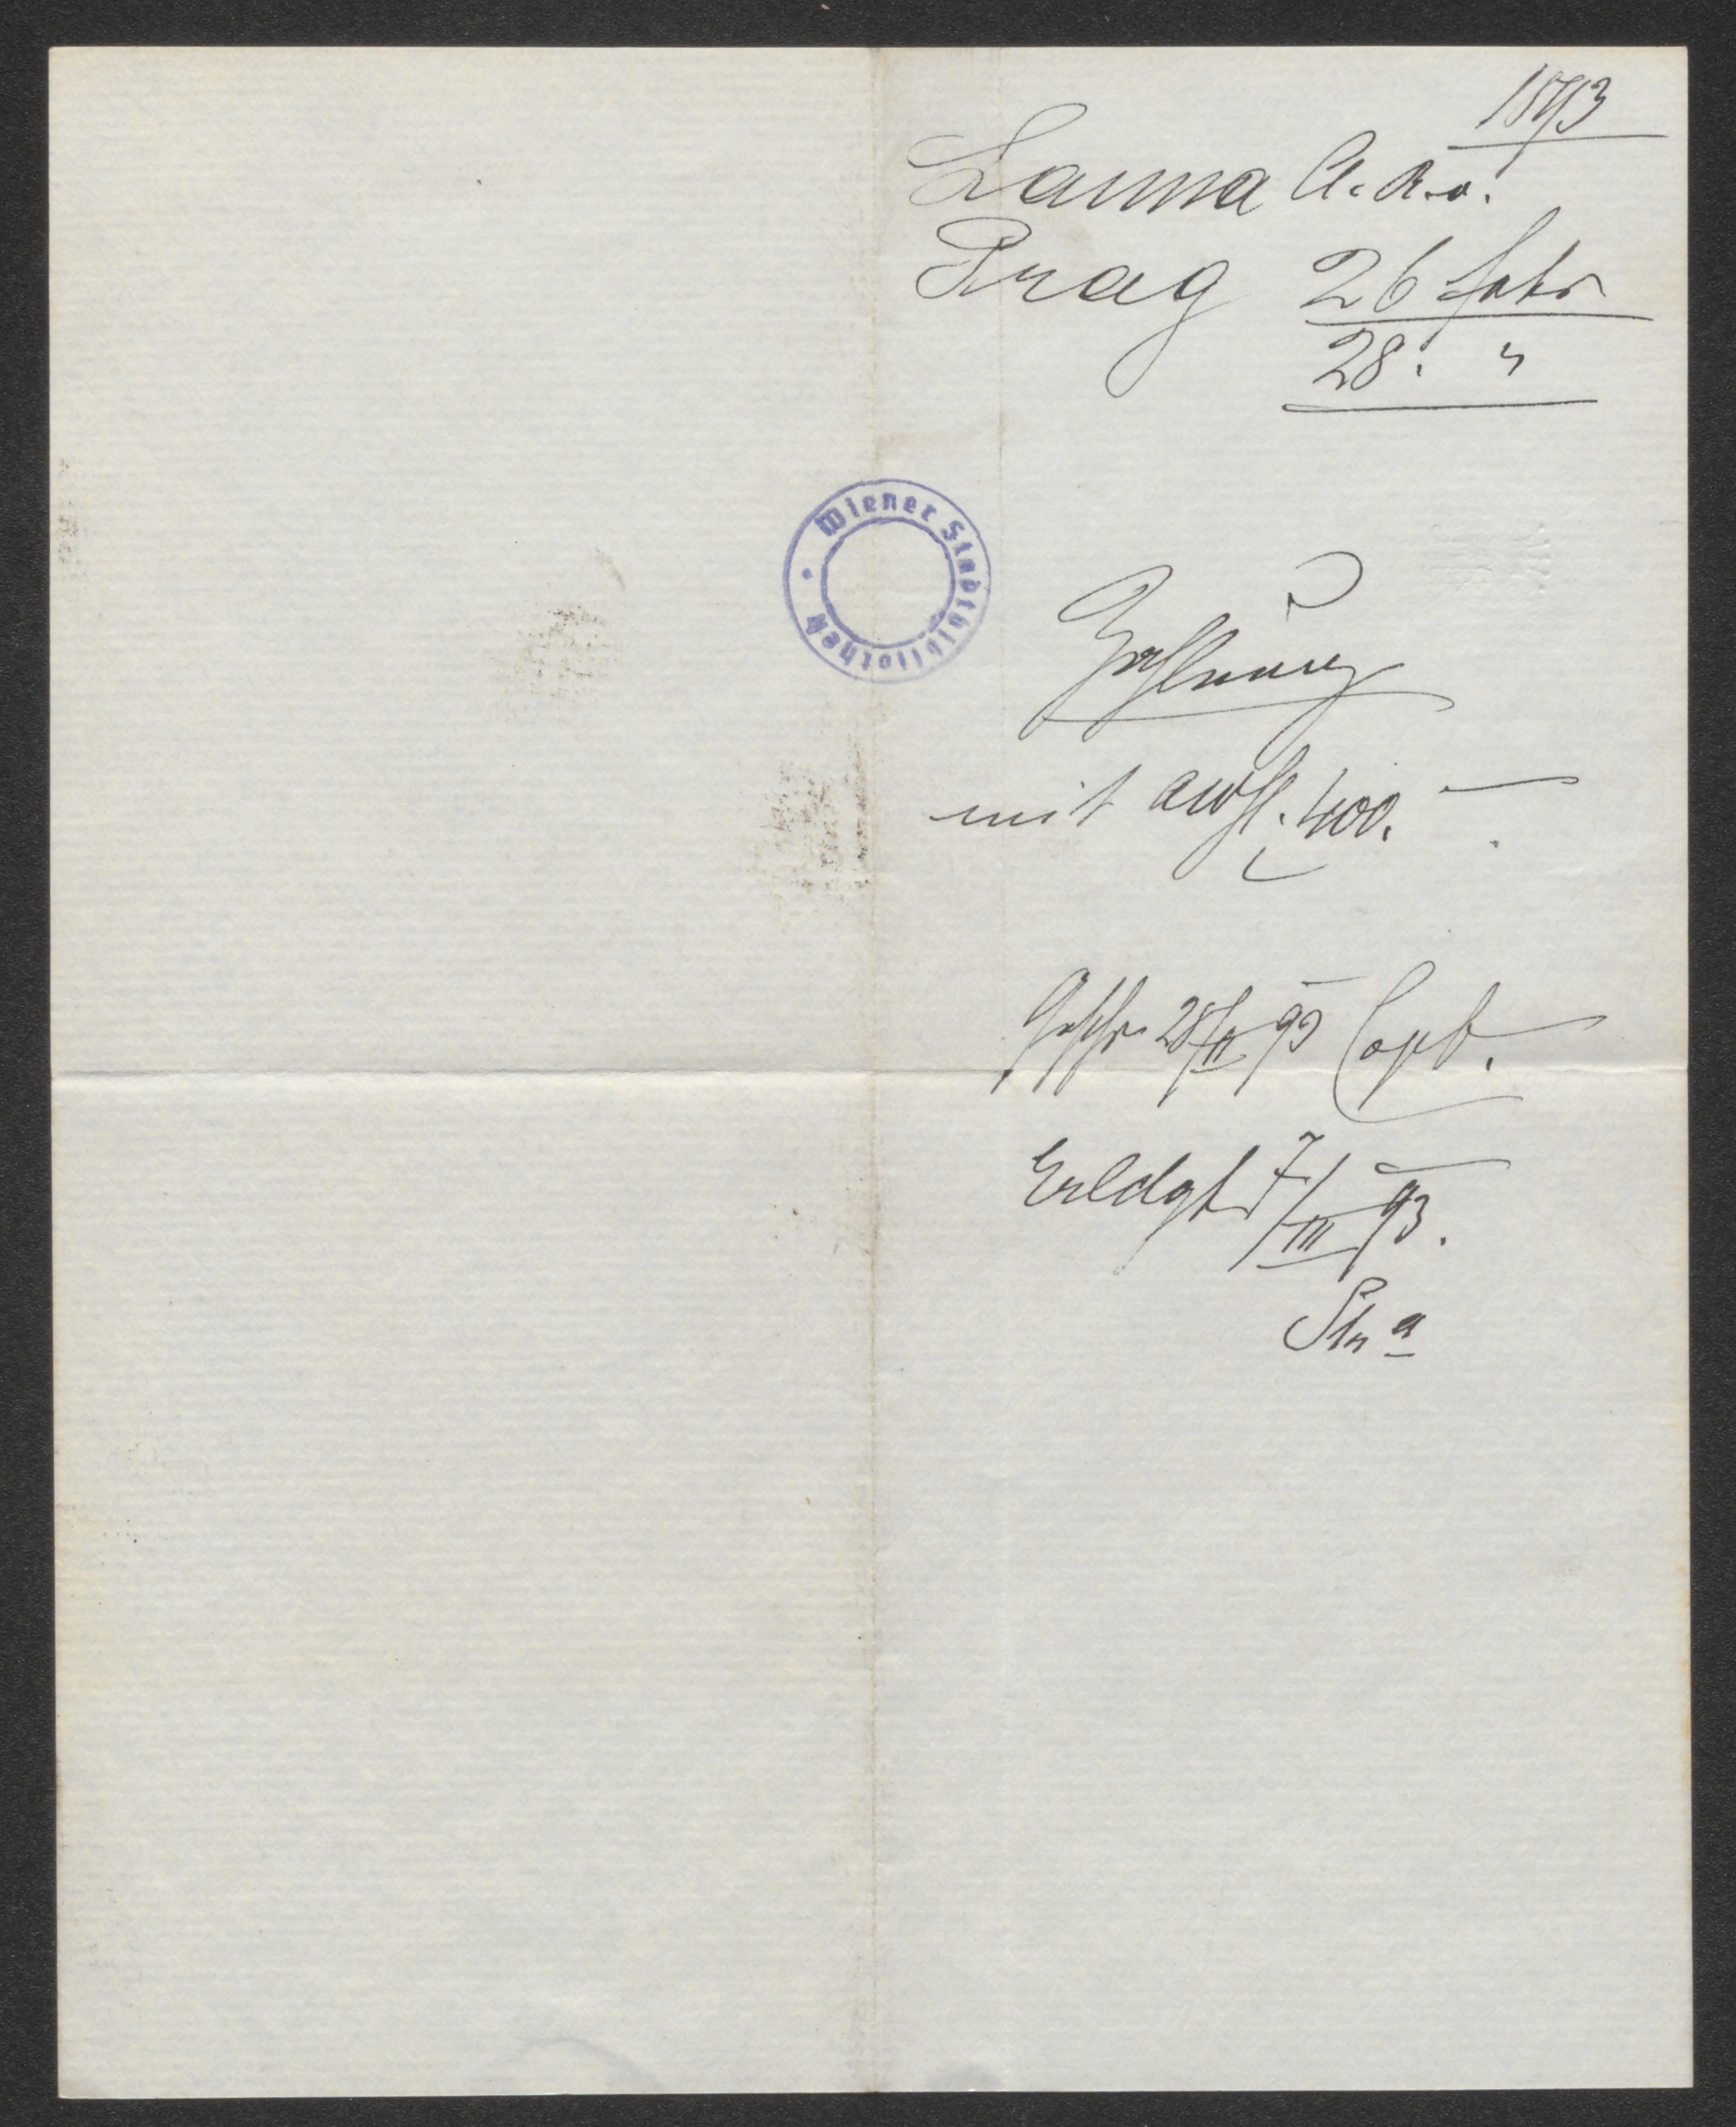 1893
Lanna A. R. v.
Prag 26 Febr
28. "
Wiener Stadtbibliothek
Zahlung
mit aWfl. 400.—
28/II 93 Copt.
Erldgt 7/III 93.